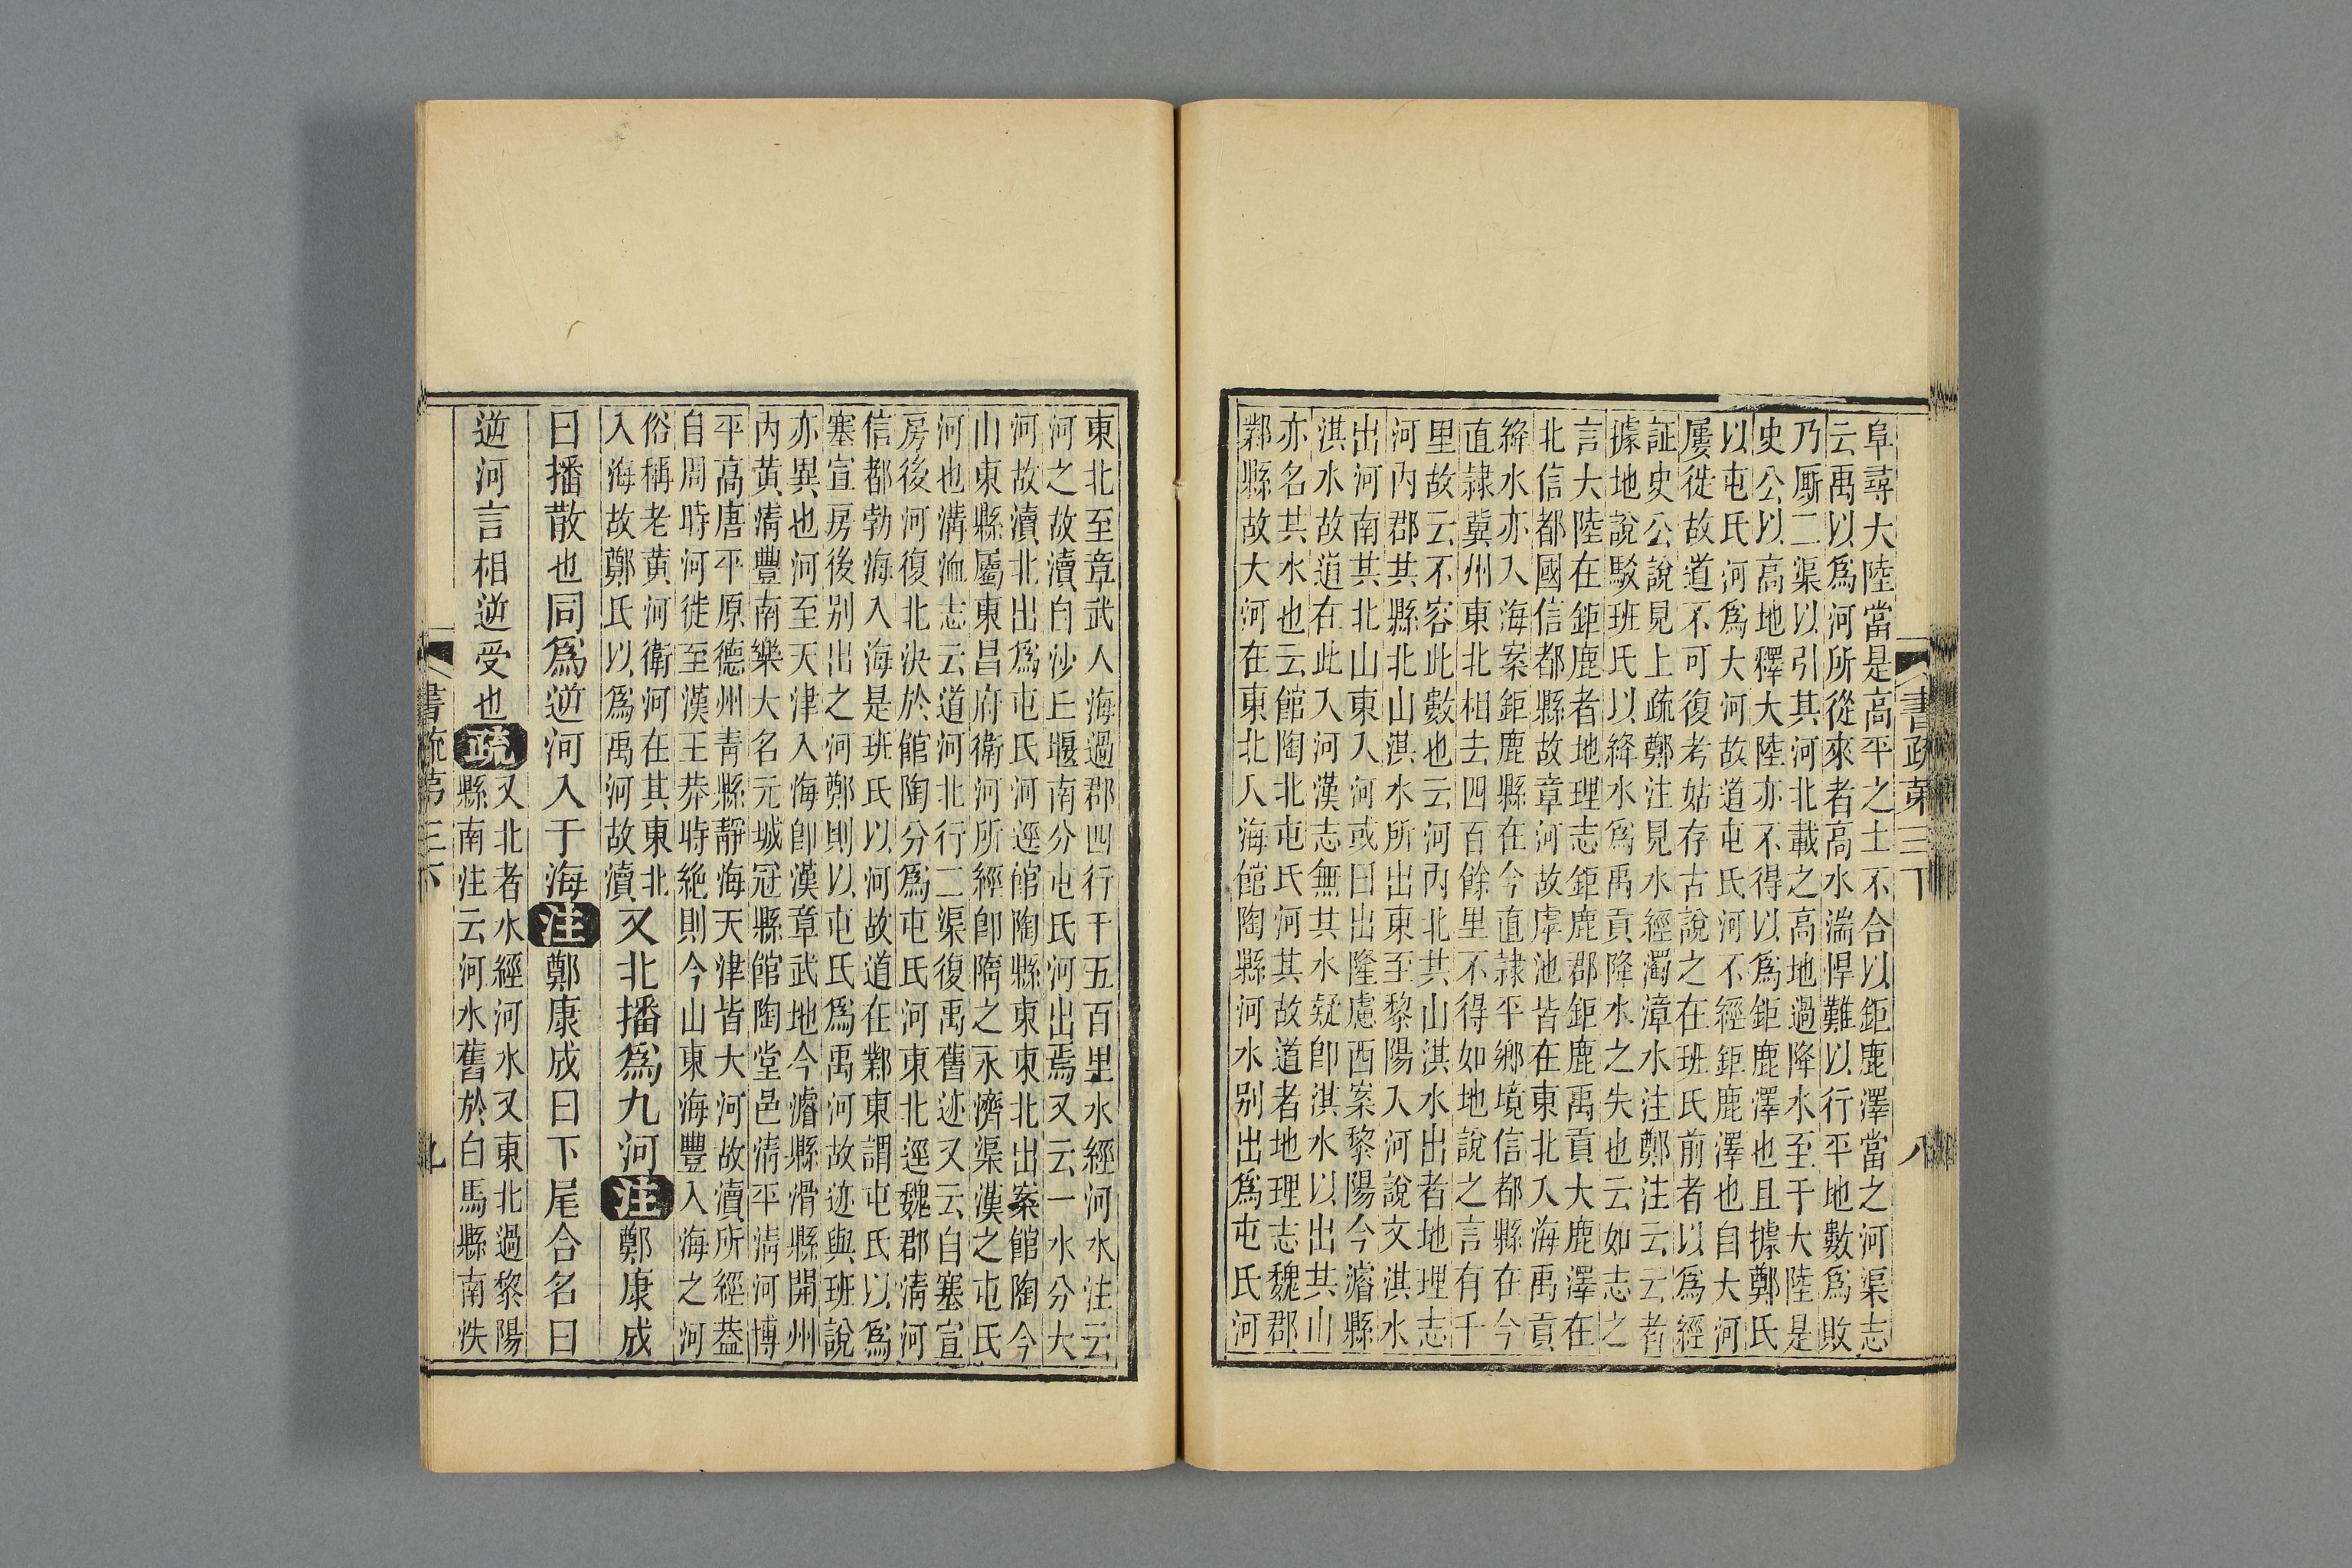 阜尋大陸當是高平之土不合以鉅鹿澤當之河渠志
云禹以爲河所從來者高水湍悍難以行平地數爲敗
乃厮二渠以引其河北載之高地過降水至于大陸是
史公以高地釋大陸亦不得以爲鉅鹿澤也且據鄭氏
以屯氏河爲大河故道屯氏河不經鉅鹿澤也自大河
屢徙故道不可復考姑存古說之在班氏前者以爲經
証史公說見上疏鄭注見水經濁漳水注鄭注云云者
據地說駁班氏以絳水爲禹貢降水之失也云如志之
言大陸在鉅鹿者地理志鉅鹿郡鉅鹿禹貢大鹿澤在
北信都國信都縣故章河故虖池皆在東北入海禹貢
絳水亦入海案鉅鹿縣在今直隸平鄉境信都縣在今
直隸冀州東北相去四百餘里不得如地說之言有千
里故云不容此數也云河內北共山淇水出者地理志
河內郡共縣北山淇水所出東至黎陽入河說文淇水
出河南其北山東入河或曰出隆慮西案黎陽今濬縣
淇水故道在此入河漢志無其水疑卽淇水以出共山
亦名共水也云館陶北屯氏河其故道者地理志魏郡
鄴縣故大河在東北入海館陶縣河水别出爲屯氏河
書疏第三下
八
東北至章武入海過郡四行千五百里水經河水注云
河之故瀆自沙丘堰南分屯氏河出焉又云一水分大
河故瀆北出爲屯氏河逕館陶縣東東北出案館陶今
山東縣屬東昌府衛河所經卽隋之永濟渠漢之屯氏
河也溝洫志云道河北行二渠復禹舊迹又云自塞宣
房後河復北決於館陶分爲屯氏河東北逕魏郡清河
信都勃海入海是班氏以河故道在鄴東謂屯氏以爲
塞宣房後别出之河鄭則以屯氏爲禹河故迹與班說
亦異也河至天津入海卽漢章武地今濬縣滑縣開州
內黃清豐南樂大名元城冠縣館陶堂邑清平清河博
平高唐平原德州靑縣靜海天津皆大河故瀆所經葢
自周時河徙至漢王莽時絶則今山東海豐入海之河
俗稱老黃河衛河在其東北
入海故鄭氏以爲禹河故瀆又北播爲九河注鄭康成
曰播散也同爲逆河入于海注鄭康成曰下尾合名曰
逆河言相逆受也疏又北者水經河水又東北過黎陽
縣南注云河水舊於白馬縣南泆
書疏第三下
九